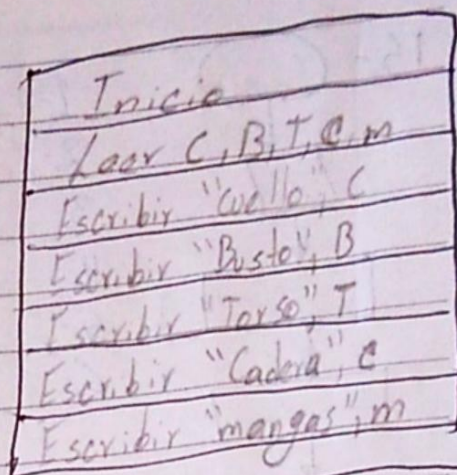 Inicio
Leer C, B, T, C, m
Escribir "Cuello", C
Escribir "Busto", B
Escribir "Torso", T
Escribir "Cadera", C
Escribir "mangas", m